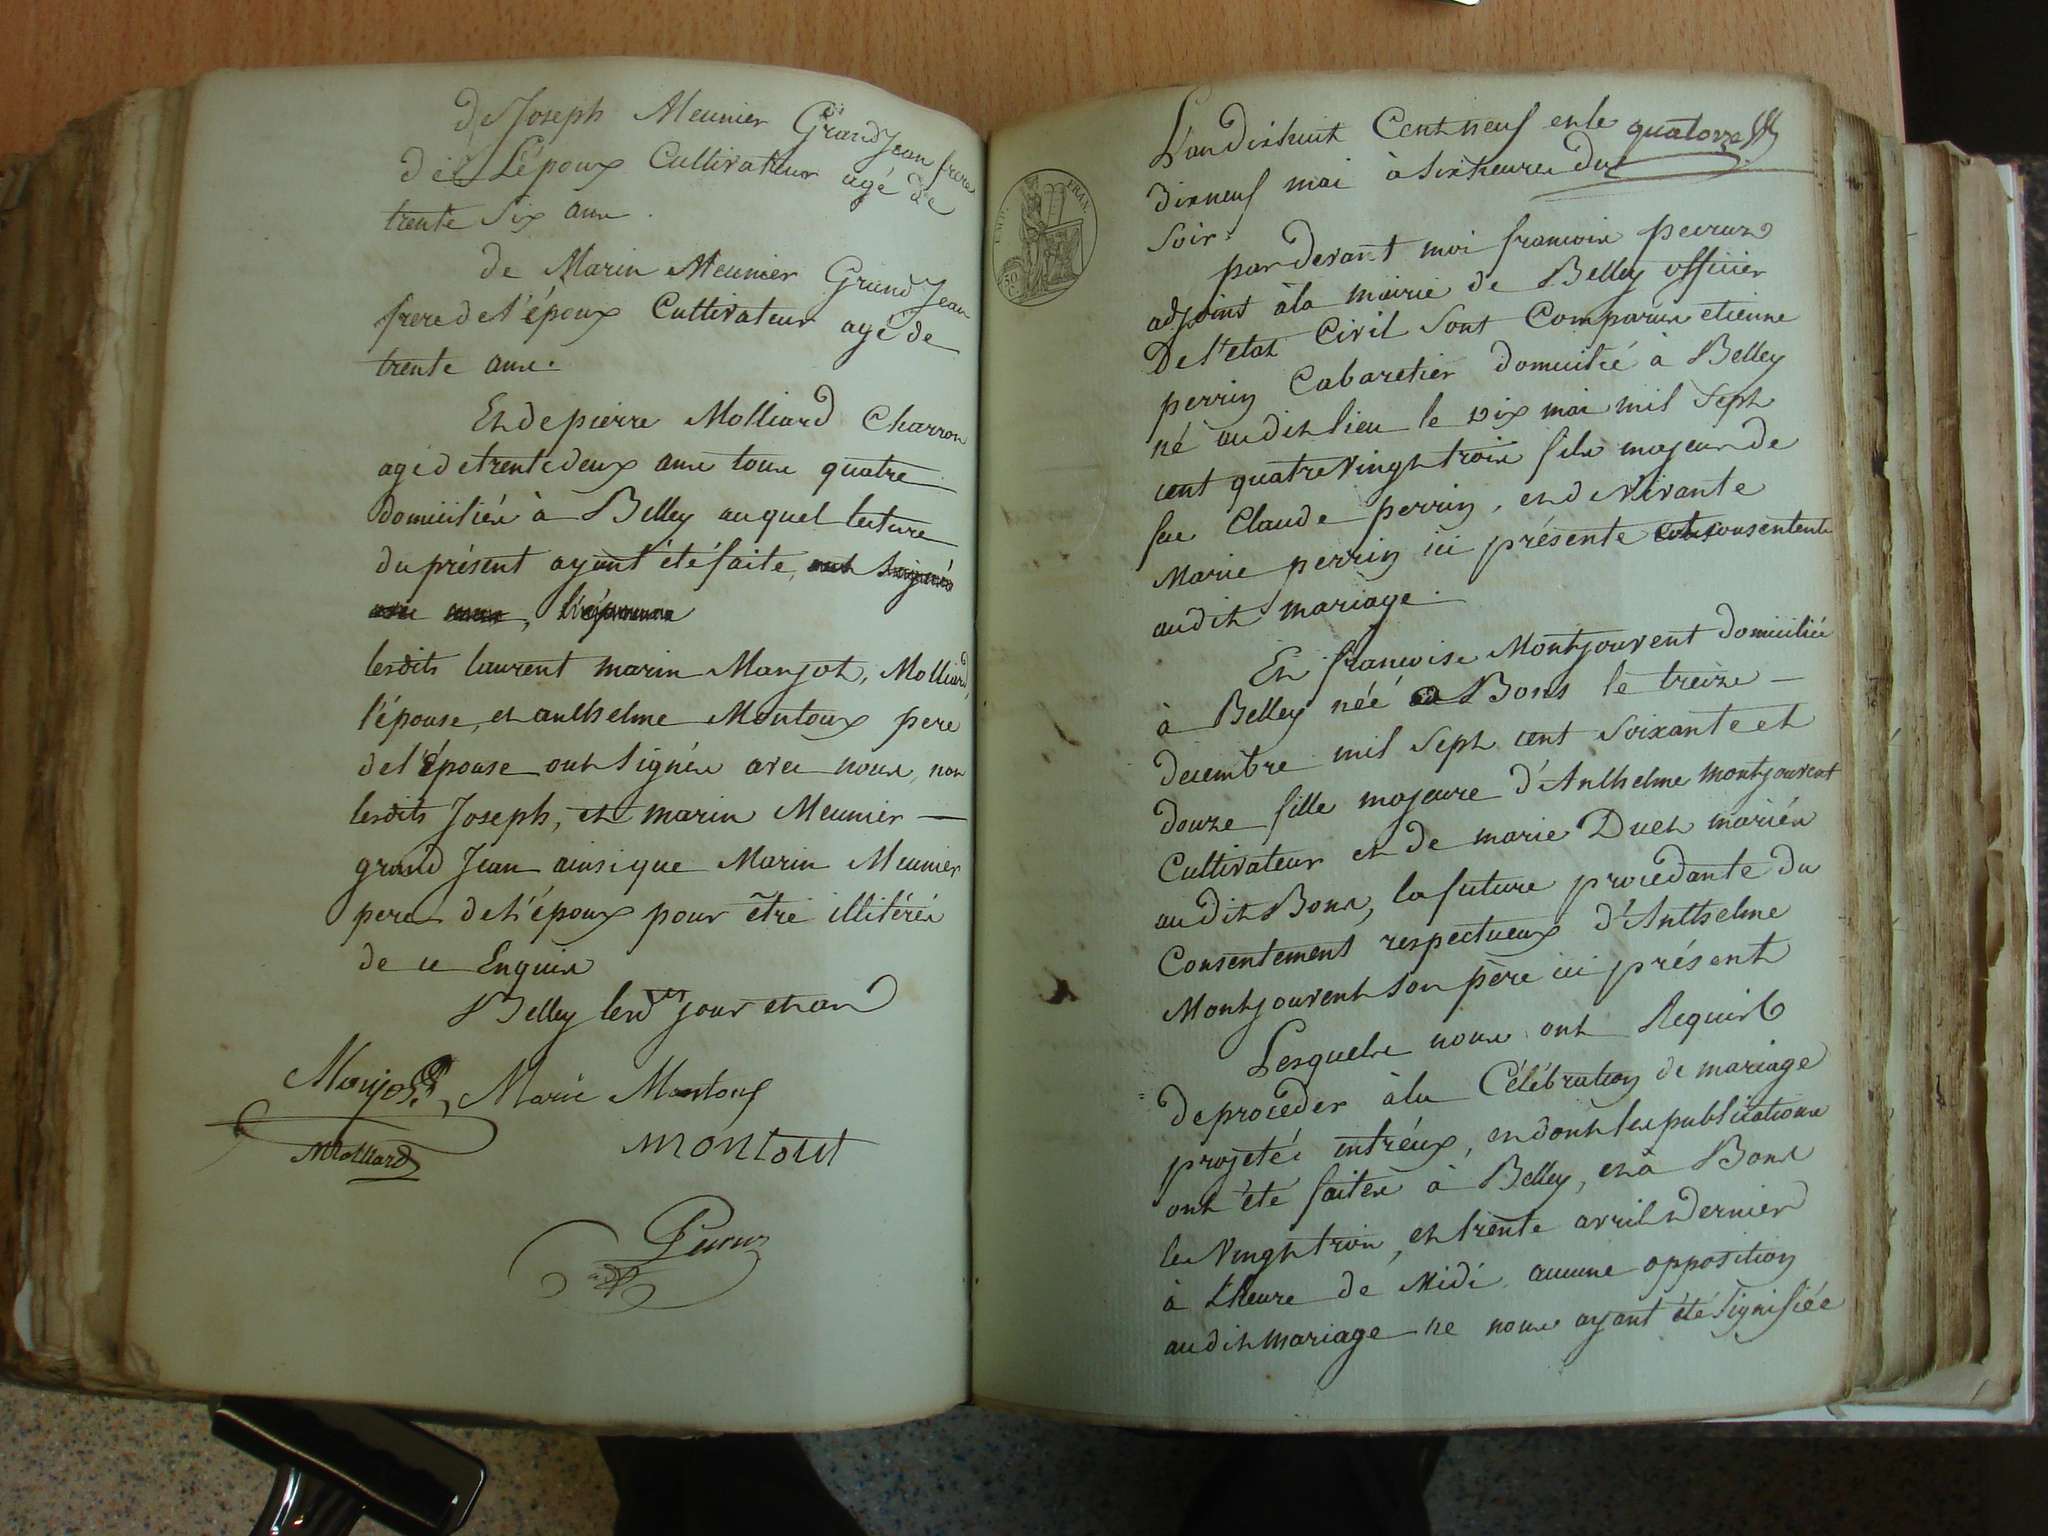 de Joseph Meunier Grand Jean frere
de L'époux Cultivateur agé de
trente Six ans.
de Marin Meunier Grand Jean
frere de l'époux Cultivateur agé de
trente ans.
Et de pierre Molliard Charron
agé de trente deux ans tous quatre
domiciliés à Belley auquel lecture
du présent ayant été faite,
lesdits laurent marin Marjot, Molliard,
l'épouse, et anthelme Montoux pere
de l'épouse ont signés avec nous, non
lesdits Joseph, et marin Meunier —
grand Jean ainsi que Marin Meunier
pere de l'époux pour être illitérés
de ce Enquis
Belley lesd jour et an
Marjot Marie Montoux
Molliard montout
Peruz
L'an dixhuit Cent neuf et le quatorze
dixneuf mai à six heures du
soir
EMP. FRAN.
50 C.
par devant moi francois peruz
adjoint à la mairie de Belley officier
De l'etat Civil sont Comparus etienne
perrin Cabaretier domicilié à Belley
né audit lieu le dix mai mil Sept
cent quatre vingt trois fils majeur de
feu Claude perrin, et de vivante
Marie perrin ici présente consentente
audit mariage.
Et françoise Montjouvent domiciliée
à Belley née à Bons le treize —
decembre mil Sept cent soixante et
douze fille majeure d'Anthelme montjouvent
Cultivateur et de marie Duet mariés
audit Bons, la future procédante du
Consentement respectueux d'Anthelme
Montjouvent son père ici présent
Lesquels nous ont Requis
de proceder à la Célébration de mariage
projeté entr'eux, et dont les publications
ont été faites à Belley, et à Bons
les vingt trois, et trente avril dernier
à l'heure de Midi aucune opposition
audit mariage ne nous ayant été signifiée